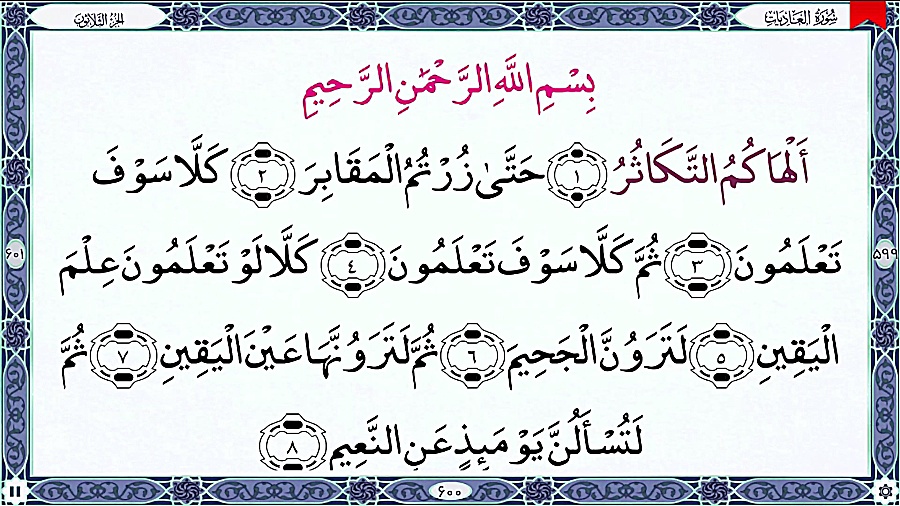 سُورَةُ العَادِيَات
الجُزءُ الثَّلَاثُونَ
بِسْمِ اللَّهِ الرَّحْمَٰنِ الرَّحِيمِ
أَلْهَاكُمُ التَّكَاثُرُ ١ حَتَّىٰ زُرْتُمُ الْمَقَابِرَ ٢ كَلَّا سَوْفَ
تَعْلَمُونَ ٣ ثُمَّ كَلَّا سَوْفَ تَعْلَمُونَ ٤ كَلَّا لَوْ تَعْلَمُونَ عِلْمَ
الْيَقِينِ ٥ لَتَرَوُنَّ الْجَحِيمَ ٦ ثُمَّ لَتَرَوُنَّهَا عَيْنَ الْيَقِينِ ٧ ثُمَّ
لَتُسْأَلُنَّ يَوْمَئِذٍ عَنِ النَّعِيمِ ٨
۵۹۹
۶۰۱
۶۰۰